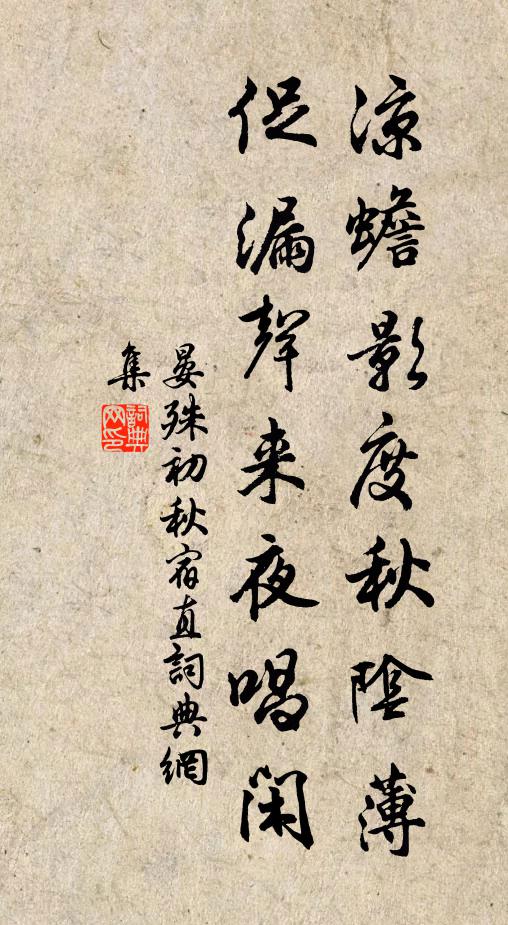 凉蟾影度秋陰薄
促漏聲来夜唱闲
晏殊初秋宿直詞典網
集
詞典
网印